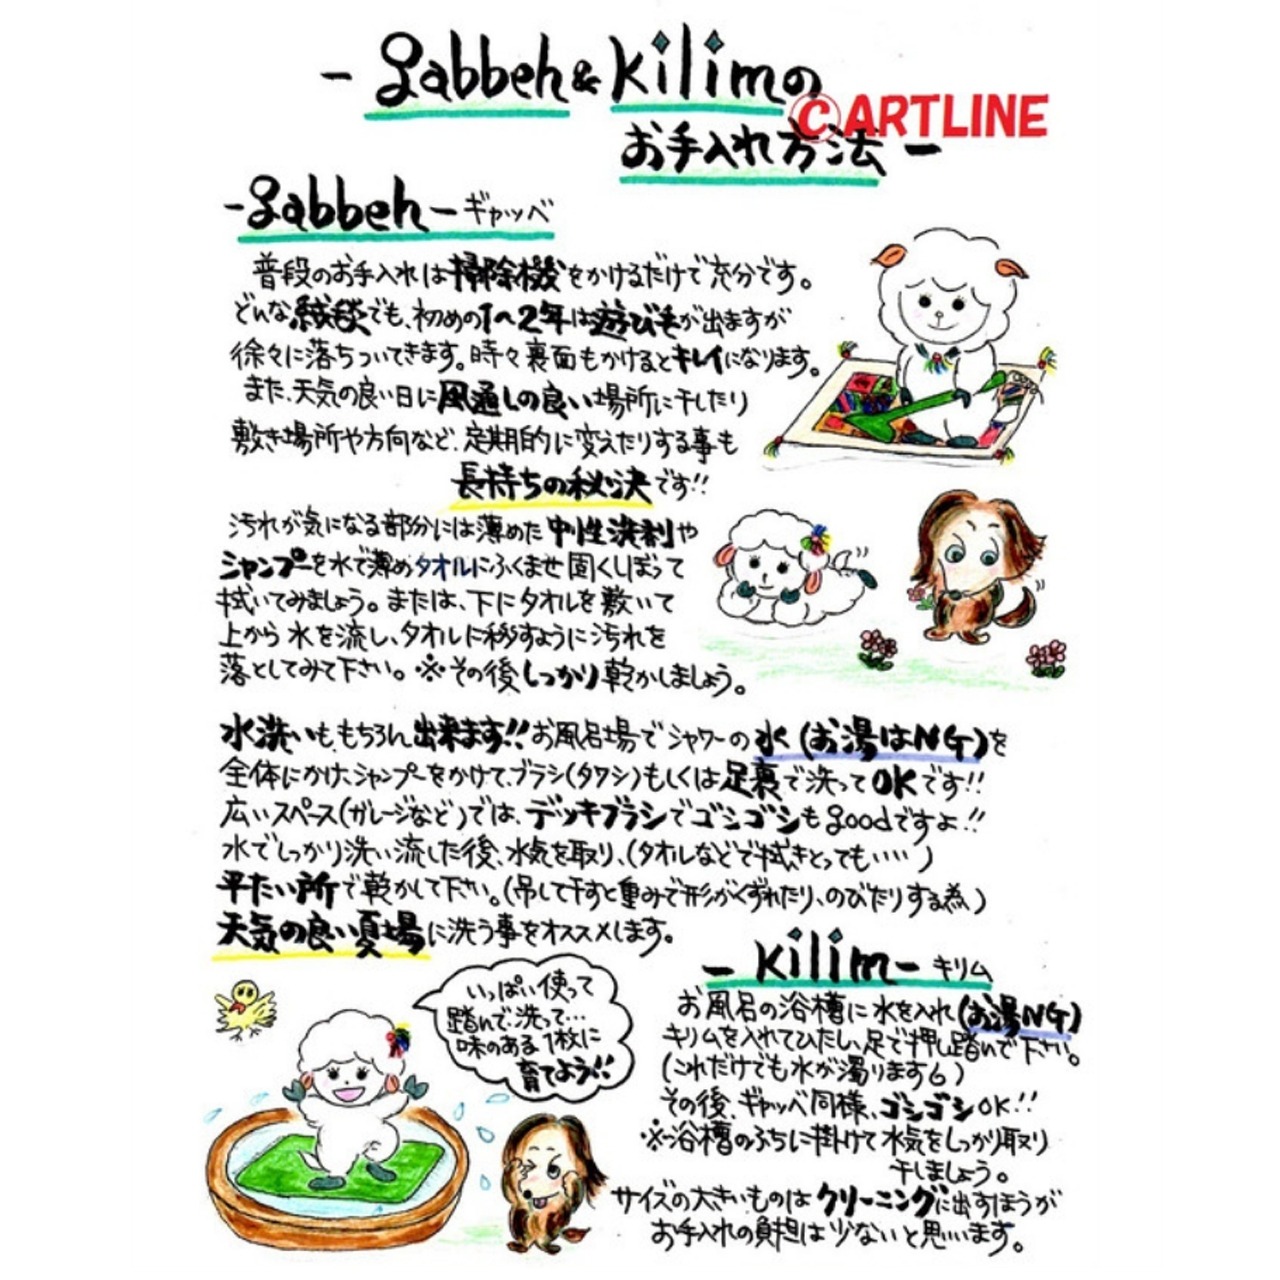 - gabbeh & kilimの
©ARTLINE
お手入れ方法 -
- gabbeh - ギャッベ
普段のお手入れは掃除機をかけるだけで充分です。
どんな絨毯でも、初めの1〜2年は遊び毛が出ますが
徐々に落ちついてきます。時々裏面もかけるとキレイになります。
また、天気の良い日に風通しの良い場所に干したり
敷き場所や方向など、定期的に変えたりする事も
長持ちの秘訣です!!
汚れが気になる部分には薄めた中性洗剤や
シャンプーを水で薄めタオルにふくませ固くしぼって
拭いてみましょう。または、下にタオルを敷いて
上から水を流し、タオルに移すように汚れを
落としてみて下さい。※その後しっかり乾かしましょう。
水洗いももちろん出来ます!!お風呂場でシャワーの水(お湯はNG)を
全体にかけ、シャンプーをかけて、ブラシ(タワシ)もしくは足裏で洗ってOKです!!
広いスペース(ガレージなど)では、デッキブラシでゴシゴシもgoodですよ!!
水でしっかり洗い流した後、水気を取り、(タオルなどで拭きとっても・・・・)
平たい所で乾かして下さい。(吊して干すと重みで形がくずれたり、のびたりする為)
天気の良い夏場に洗う事をオススメします。
- kilim - キリム
お風呂の浴槽に水を入れ(お湯NG)
キリムを入れてひたし、足で押し踏んで下さい。
(これだけでも水が濁ります6)
その後、ギャッベ同様、ゴシゴシOK!!
※浴槽のふちに掛けて水気をしっかり取り
干しましょう。
サイズの大きいものはクリーニングに出すほうが
お手入れの負担は少ないと思います。
いっぱい使って
踏んで、洗って…
味のある1枚に
育てよう!!